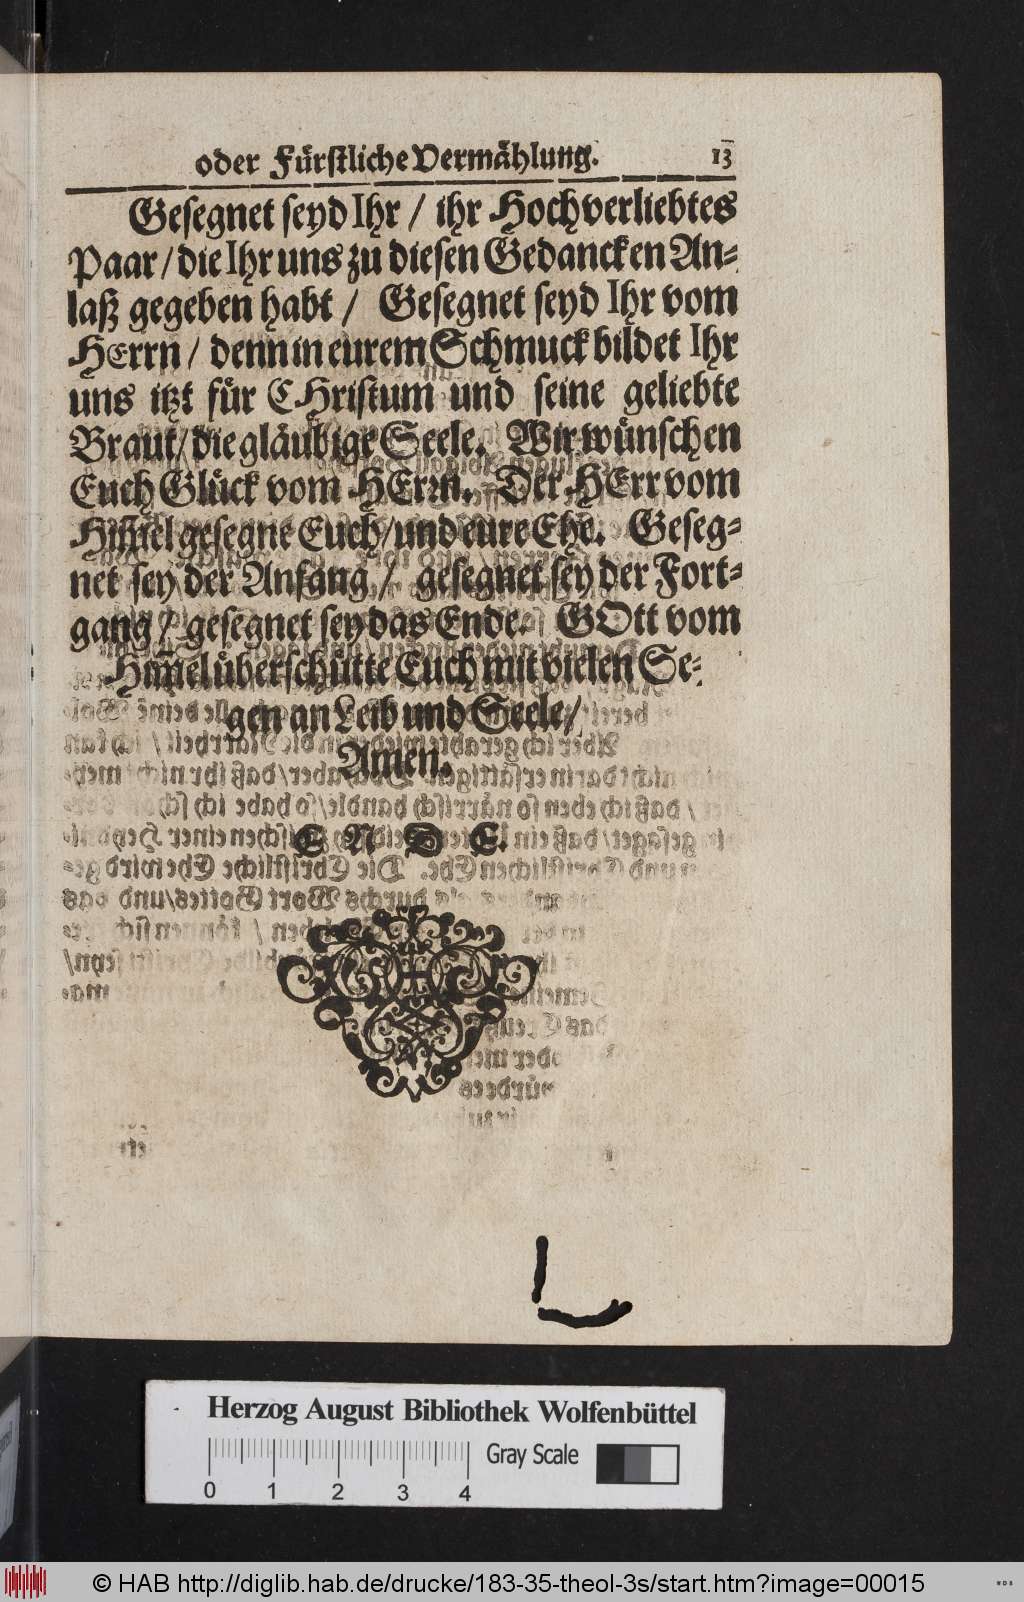 oder Fürstliche Vermählung. 13
Gesegnet seyd Ihr / ihr Hochverliebtes
Paar / die Ihr uns zu diesen Gedancken An-
laß gegeben habt / Gesegnet seyd Ihr vom
HErrn / denn in eurem Schmuck bildet Ihr
uns itzt für CHristum und seine geliebte
Braut / die gläubige Seele. Wir wünschen
Euch Glück vom HErrn. Der HErr vom
Him̃el gesegne Euch / und eure Ehe. Geseg-
net sey der Anfang / gesegnet sey der Fort-
gang / gesegnet sey das Ende. GOtt vom
Him̃el überschütte Euch mit vielen Se-
gen an Leib und Seele /
Amen.
E N D E.
Herzog August Bibliothek Wolfenbüttel
Gray Scale
0 1 2 3 4
© HAB http://diglib.hab.de/drucke/183-35-theol-3s/start.htm?image=00015